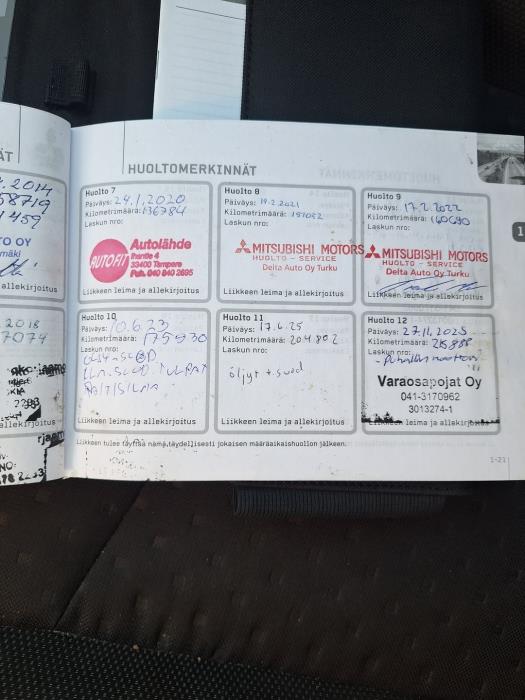 ÄT
.2014
58719
1459
TO OY
mäki
allekirjoitus
2018
7074
2288
allekirjoitus
HUOLTOMERKINNÄT
Huolto 7
Päiväys: 24.1.2020
Kilometrimäärä: 136784
Laskun nro:
AUTOFIT
Autolähde
33400 Tampere
Puh. 040 840 2695
Liikkeen leima ja allekirjoitus
Huolto 8
Päiväys: 19.2.2021
Kilometrimäärä: 151052
Laskun nro:
MITSUBISHI MOTORS
HUOLTO - SERVICE
Delta Auto Oy Turku
Liikkeen leima ja allekirjoitus
Huolto 9
Päiväys: 17.2.2022
Kilometrimäärä: 160690
Laskun nro:
MITSUBISHI MOTORS
HUOLTO - SERVICE
Delta Auto Oy Turku
Liikkeen leima ja allekirjoitus
1
Huolto 10
Päiväys: 10.6.23
Kilometrimäärä: 175930
Laskun nro:
Liikkeen leima ja allekirjoitus
Huolto 11
Päiväys: 17.6.25
Kilometrimäärä: 204802
Laskun nro:
öljyt + suod
Liikkeen leima ja allekirjoitus
Huolto 12
Päiväys: 27.11.2025
Kilometrimäärä: 215888
Laskun nro:
Varaosapojat Oy
041-3170962
3013274-1
Liikkeen leima ja allekirjoitus
Liikkeen tulee täyttää nämä täydellisesti jokaisen määräaikaishuollon jälkeen.
1-21